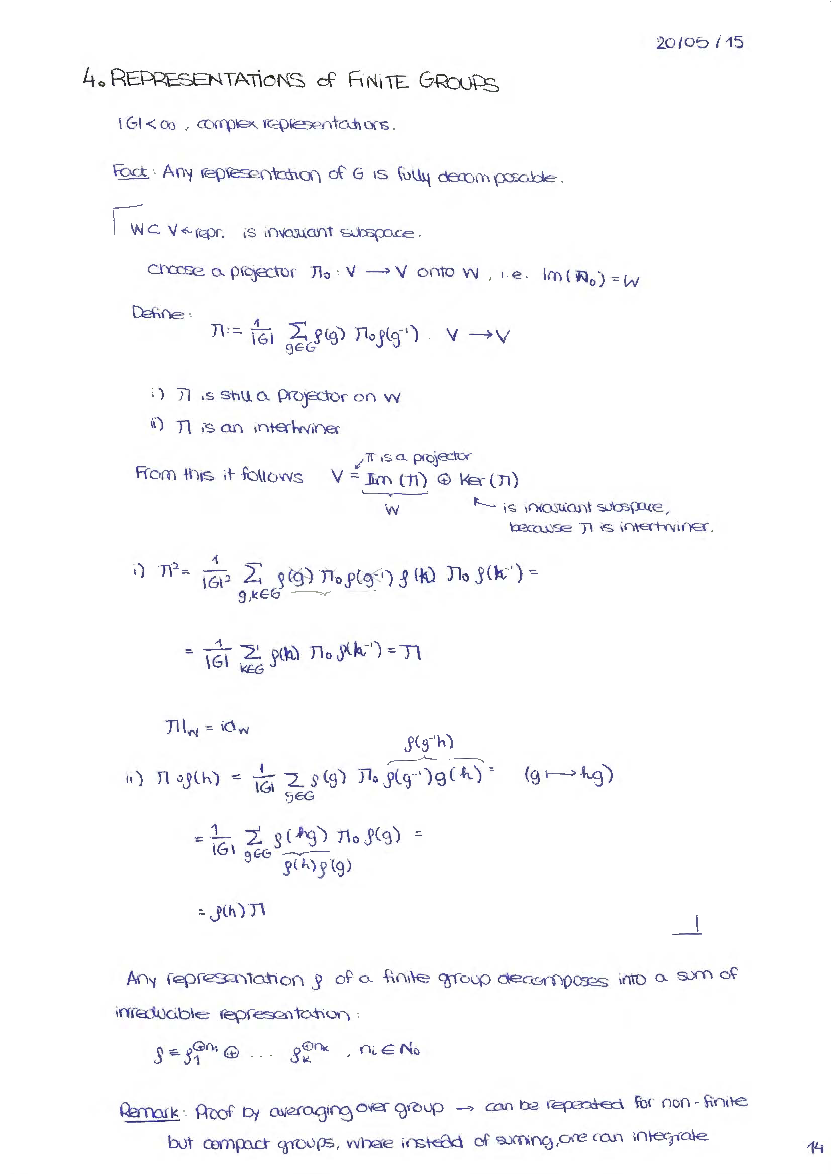 20/05/15
4. REPRESENTATIONS of FINITE GROUPS
|G| < ∞ , complex representations.
Fact: Any representation of G is fully decomposable.
W ⊂ V ← repr. is invariant subspace.
choose a projector Π₀ : V → V onto W , i.e. Im(Π₀) = W
Define:
Π := 1/|G| Σ_{g∈G} ρ(g) Π₀ ρ(g⁻¹) . V → V
i) Π is still a projector on W
ii) Π is an intertwiner
π is a projector
From this it follows V = Im (Π) ⊕ Ker (Π)
W is invariant subspace,
because Π is intertwiner.
i) Π² = 1/|G|² Σ_{g,k∈G} ρ(g) Π₀ ρ(g⁻¹) ρ(k) Π₀ ρ(k⁻¹) =
= 1/|G| Σ_{k∈G} ρ(k) Π₀ ρ(k⁻¹) = Π
Π|_W = id_W
ρ(g⁻¹h)
ii) Π ∘ρ(h) = 1/|G| Σ_{g∈G} ρ(g) Π₀ ρ(g⁻¹)ρ(h) = (g ↦ hg)
= 1/|G| Σ_{g∈G} ρ(hg) Π₀ ρ(g) =
ρ(h)ρ(g)
= ρ(h) Π
Any representation ρ of a finite group decomposes into a sum of
irreducible representation :
ρ ≅ ρ₁^{⊕n₁} ⊕ ... ρ_k^{⊕n_k} , nᵢ ∈ N₀
Remark: Proof by averaging over group → can be repeated for non-finite
but compact groups, where instead of suming, one can integrate
14